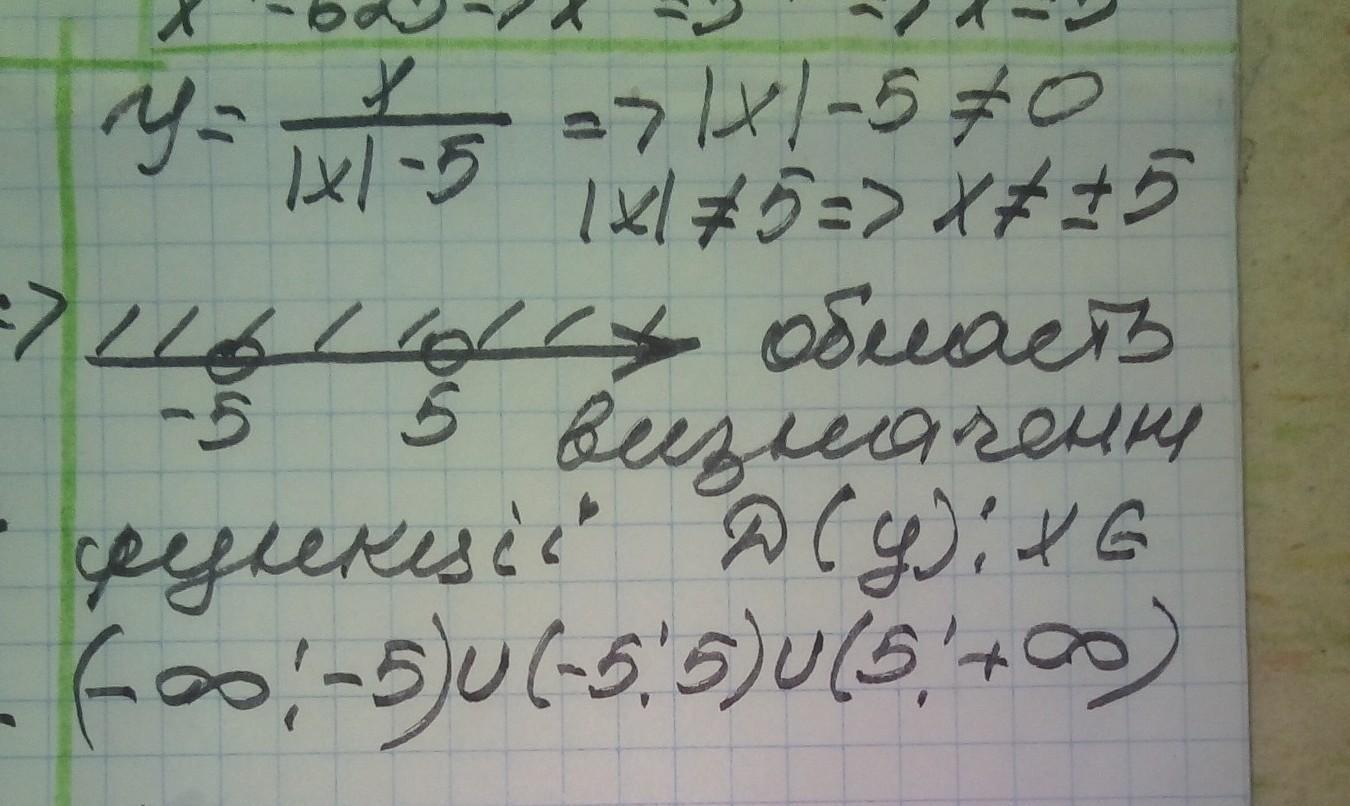 y = x / |x| - 5 => |x| - 5 ≠ 0
|x| ≠ 5 => x ≠ ± 5
=> -5 5 область
визначення
функції D(y): x ∈
(-∞; -5) ∪ (-5; 5) ∪ (5; +∞)